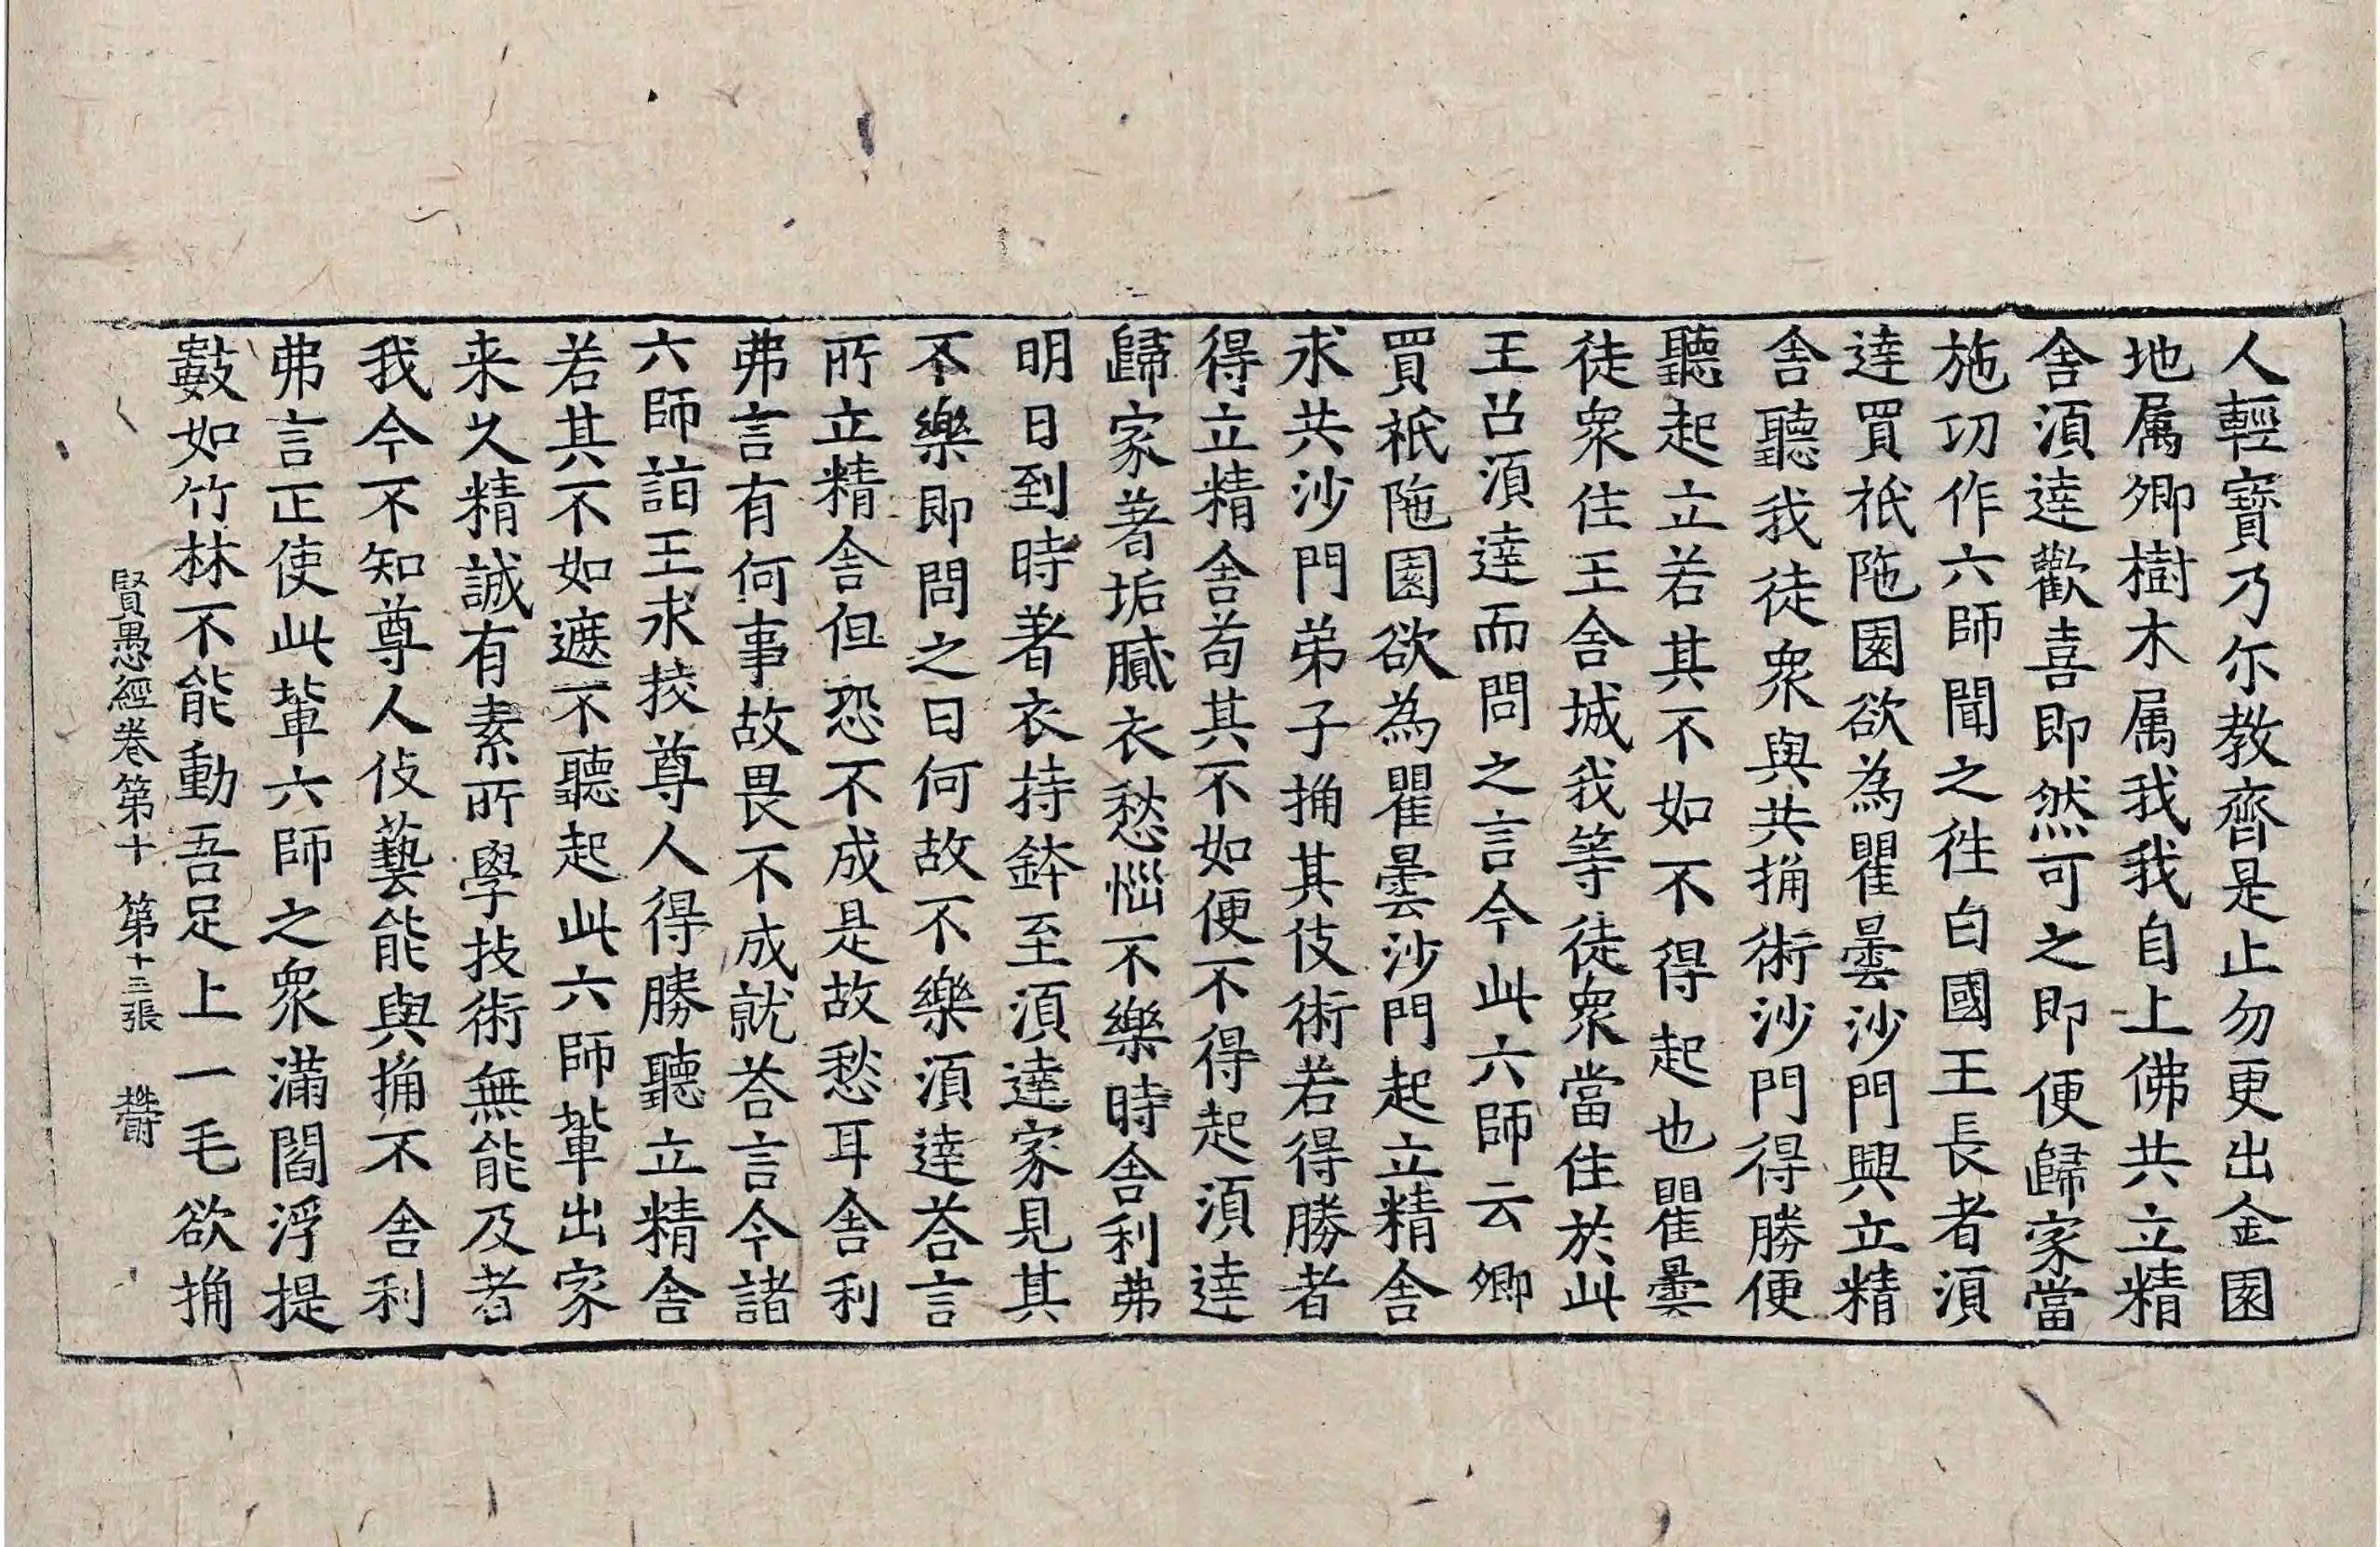 人輕寶乃尒教齊是止勿更出金園
地属卿樹木属我我自上佛共立精
舍湏達歡喜即然可之即便歸家當
施功作六師聞之徃白國王長者湏
達買祇陁園欲為瞿曇沙門興立精
舍聽我徒衆與共捔術沙門得勝便
聽起立若其不如不得起也瞿曇
徒衆住王舍城我等徒衆當住於此
王召湏達而問之言今此六師云卿
買祇陁園欲為瞿曇沙門起立精舍
求共沙門弟子捔其伎術若得勝者
得立精舍苟其不如便不得起湏達
歸家著垢膩衣愁惱不樂時舍利弗
明日到時著衣持鉢至湏達家見其
不樂即問之曰何故不樂湏達荅言
所立精舍但恐不成是故愁耳舍利
弗言有何事故畏不成就荅言今諸
六師詣王求挍尊人得勝聽立精舍
若其不如遮不聽起此六師軰出家
来久精誠有素所學技術無能及者
我今不知尊人伎藝能與捔不舍利
弗言正使此軰六師之衆滿閻浮提
數如竹林不能動吾足上一毛欲捔
賢愚經卷第十　第十三張